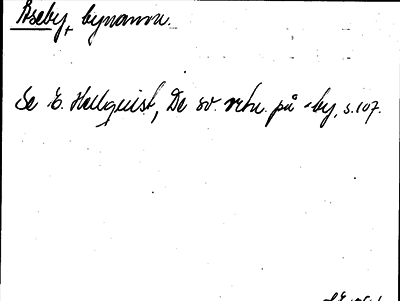 Åseby, bynamn.
Se E. Hellquist, De sv. ortn. på -by, s. 107.